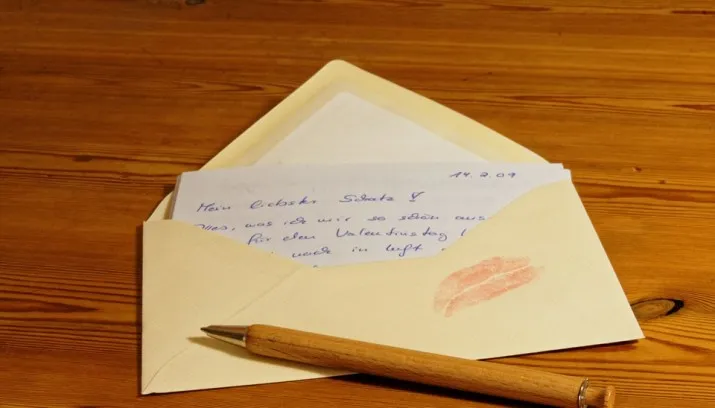 14.2.09
Mein liebster Schatz !
was ich mir so schön aus
für den Valentinstag
in